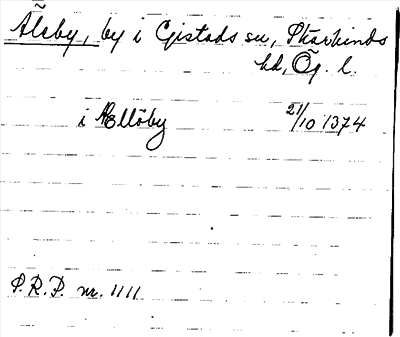 Äleby, by i Gistads sn, Skärkinds
hd, Ög. l.
i Ællöby 21/10 1374
P.R.P. nr. 1111